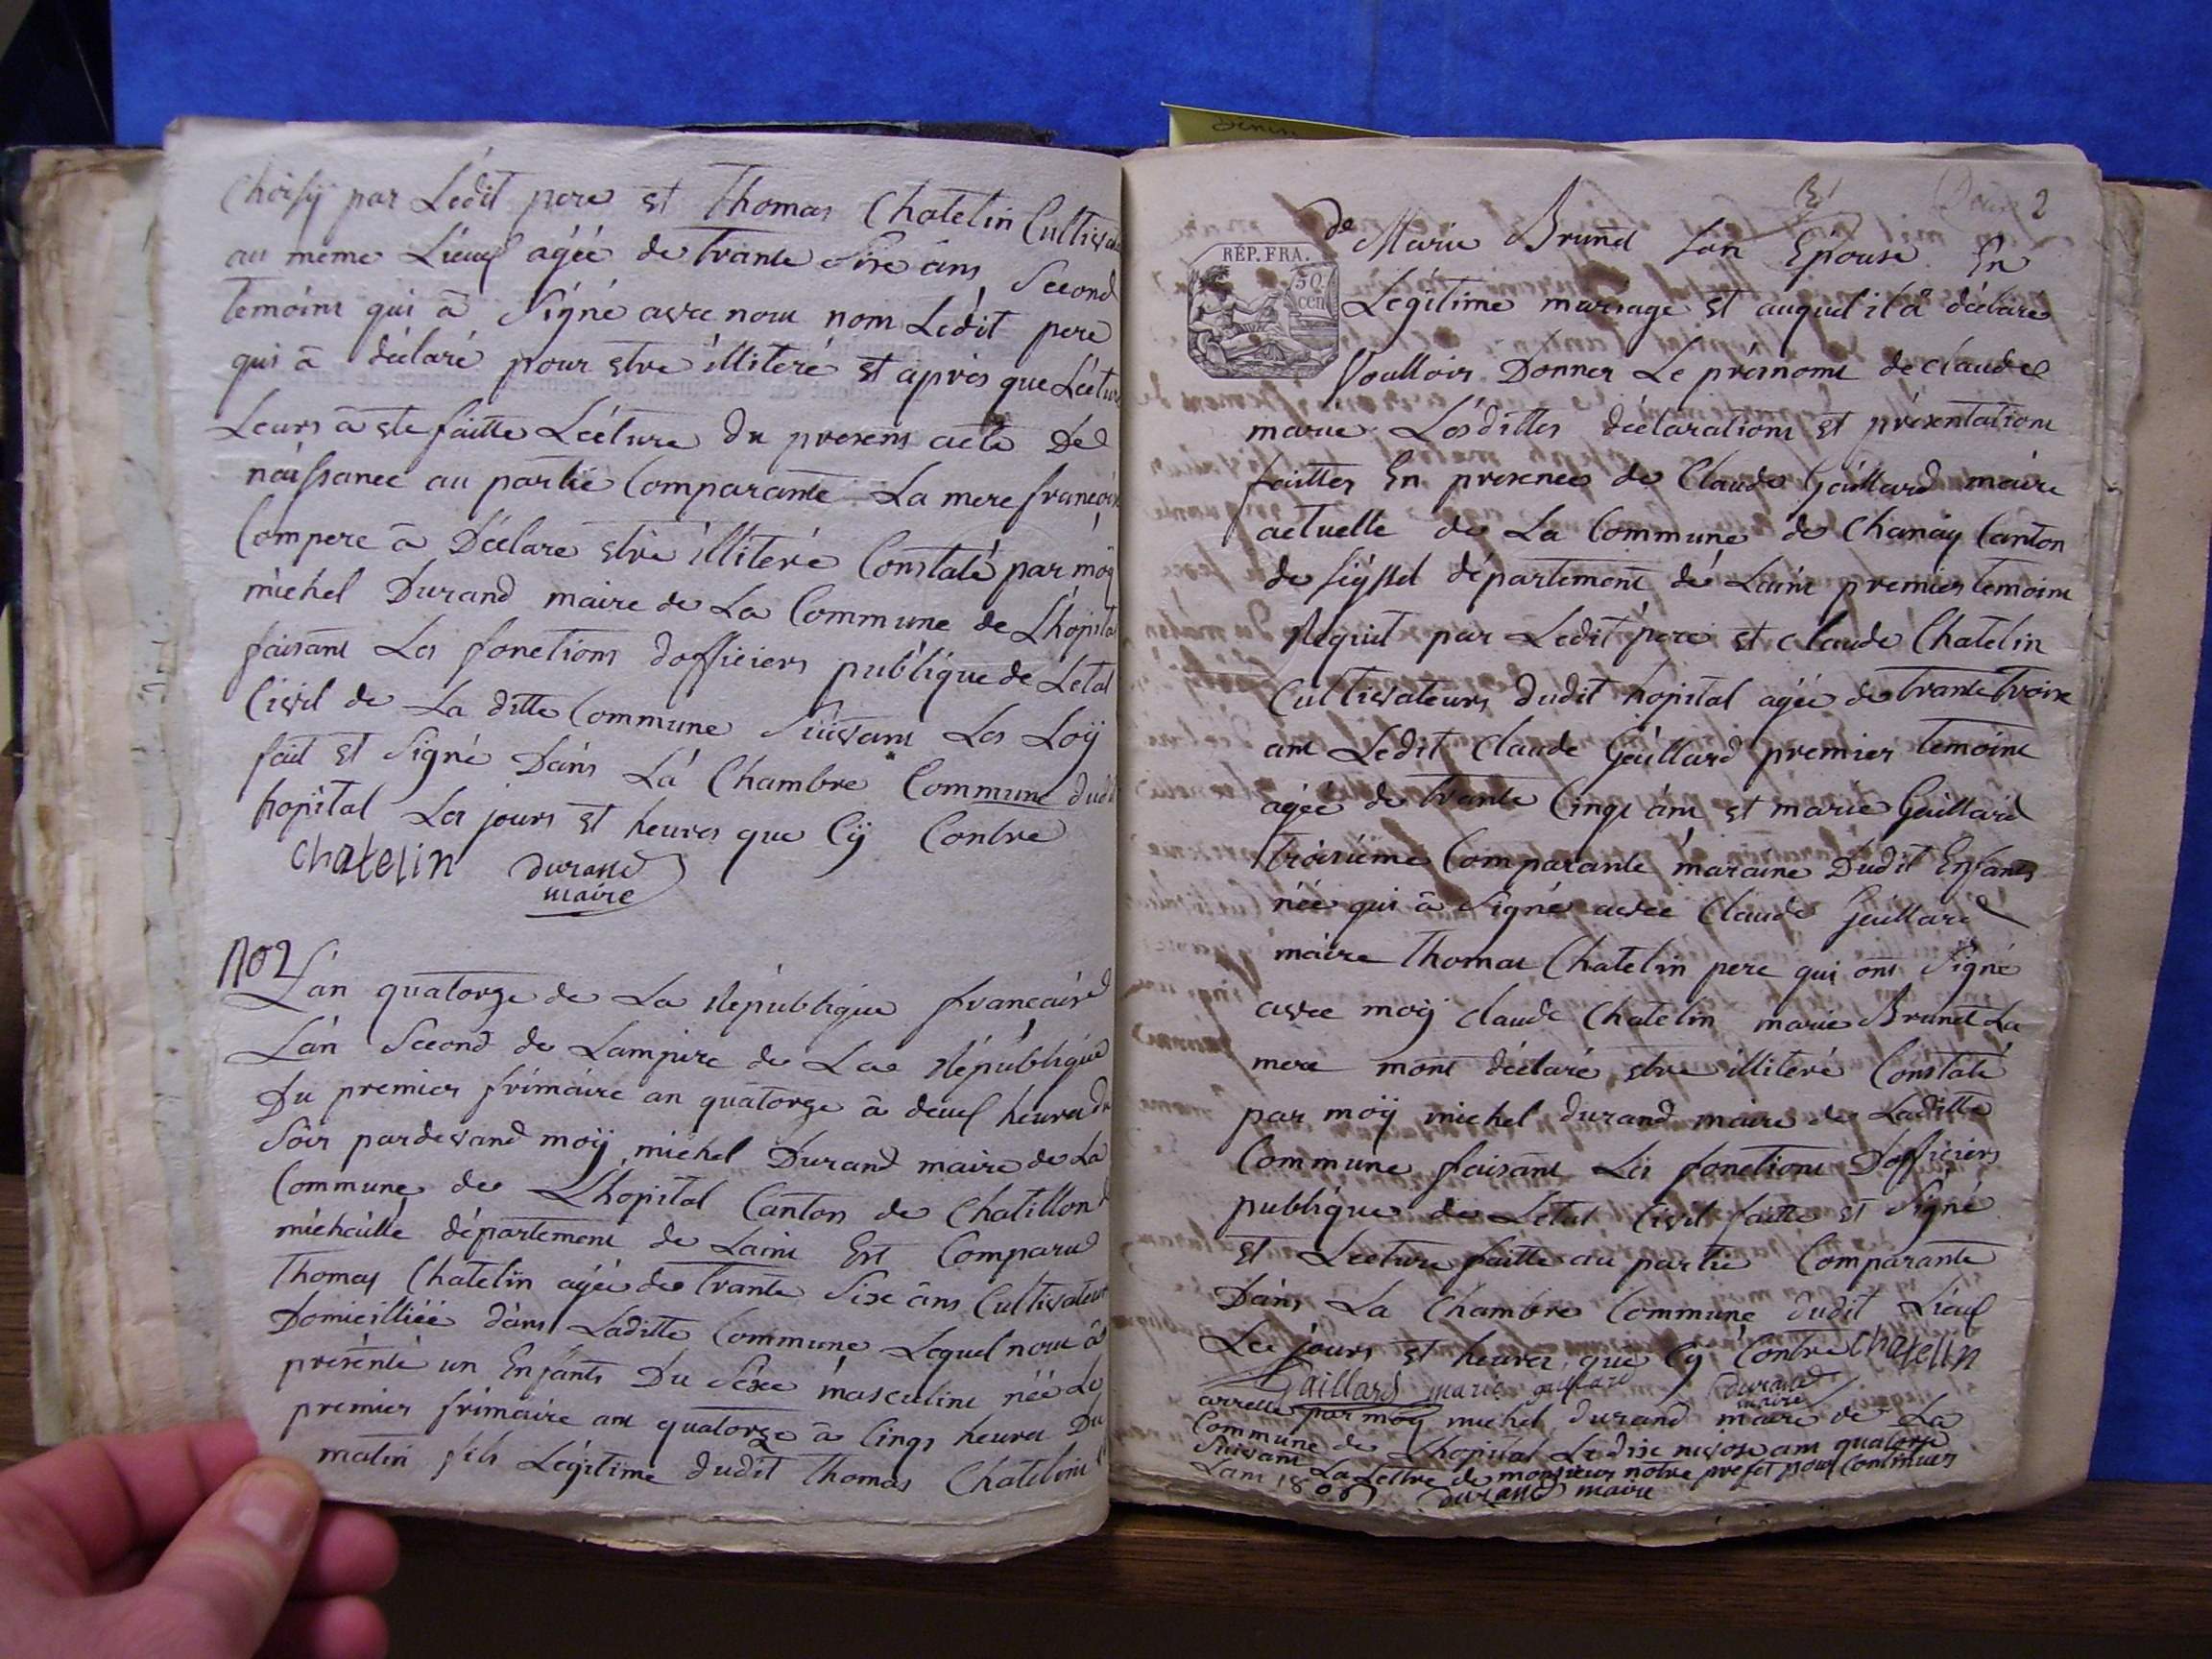 Choisÿ par Lédit pere et Thomas Chatelin Cultiva
au meme Lieux agéé de trante Sixe ans Second
temoins qui à Signé avec nous nom Lédit pere
qui à déclaré pour etre illiteré et après que Léctur
Leurs à ete faitte Lécture du present acte De
naissance au partie Comparante La mere françois
Compere à Déclare etre illiteré Constaté par möy
michel Durand maire de La Commune de L'hopita
faisant Les fonctions d'officiers publique de L'etat
Civil de La ditte Commune Suivant Les Loÿ
fait et Signé Dans La Chambre Commune dud
hopital Les jours et heures que Cÿ Contre
Chatelin durand
maire
no 2
L'an quatorze de La République francaise
L'an Second de Lampire de La République
Du premier frimaire an quatorze à deux heures du
Soir pardevand moÿ michel Durand maire de La
Commune de L'hopital Canton de Chatillon
michaille département de Lains Est Comparu
Thomas Chatelin agéé de trante Sixe ans Cultivateur
Domicilliéé dans Laditte Commune Lequel nous à
présenté un Enfants Du Sexe masculins néé Le
premier frimaire ans quatorze à Cinqs heures Du
matin fils Légitime dudit Thomas Chatelins
2
RÉP. FRA.
50
cen
de Marie Brunel Son Epouse En
Legitime mariage et auquel il à déclare
Voulloir Donner Le prénoms de claude
marie Lésdittes déclarations et présentations
faittes En presence de Claude Gaillard maire
actuelle de La Commune de Chanay Canton
de Siÿssel département de Lains premier temoins
Requit par Ledit pere et claude Chatelin
Cultivateurs dudit hopital agéé de trante troise
ans Ledit Claude Gaillard premier temoins
agéé de trante Cinqs ans et marie Gaillard
troisieme Comparante maraine Dudit Enfants
néé qui à Signé avec Claude Gaillard
maire Thomas Chatelin pere qui ons Signé
avec moÿ claude Chatelin marie Brunel La
mere mons déclaré etre illiteré Constaté
par moÿ michel durand maire de Laditte
Commune faisans Les fonctions D'officiers
publiques de L'etat Civil faitte et Signé
et Lecture faitte au partie Comparante
Dans La Chambre Commune dudit Lieux
Les jours et heures que Cÿ Contre Chatelin
Gaillard marie gaillard durand
maire
arrette par moÿ michel durand maire de La
Commune de L'hopital Le dixe nivose ans quatorze
Suivant La Lettre de monsieur notre prefet pour Continuer
Lans 1806 durand maire